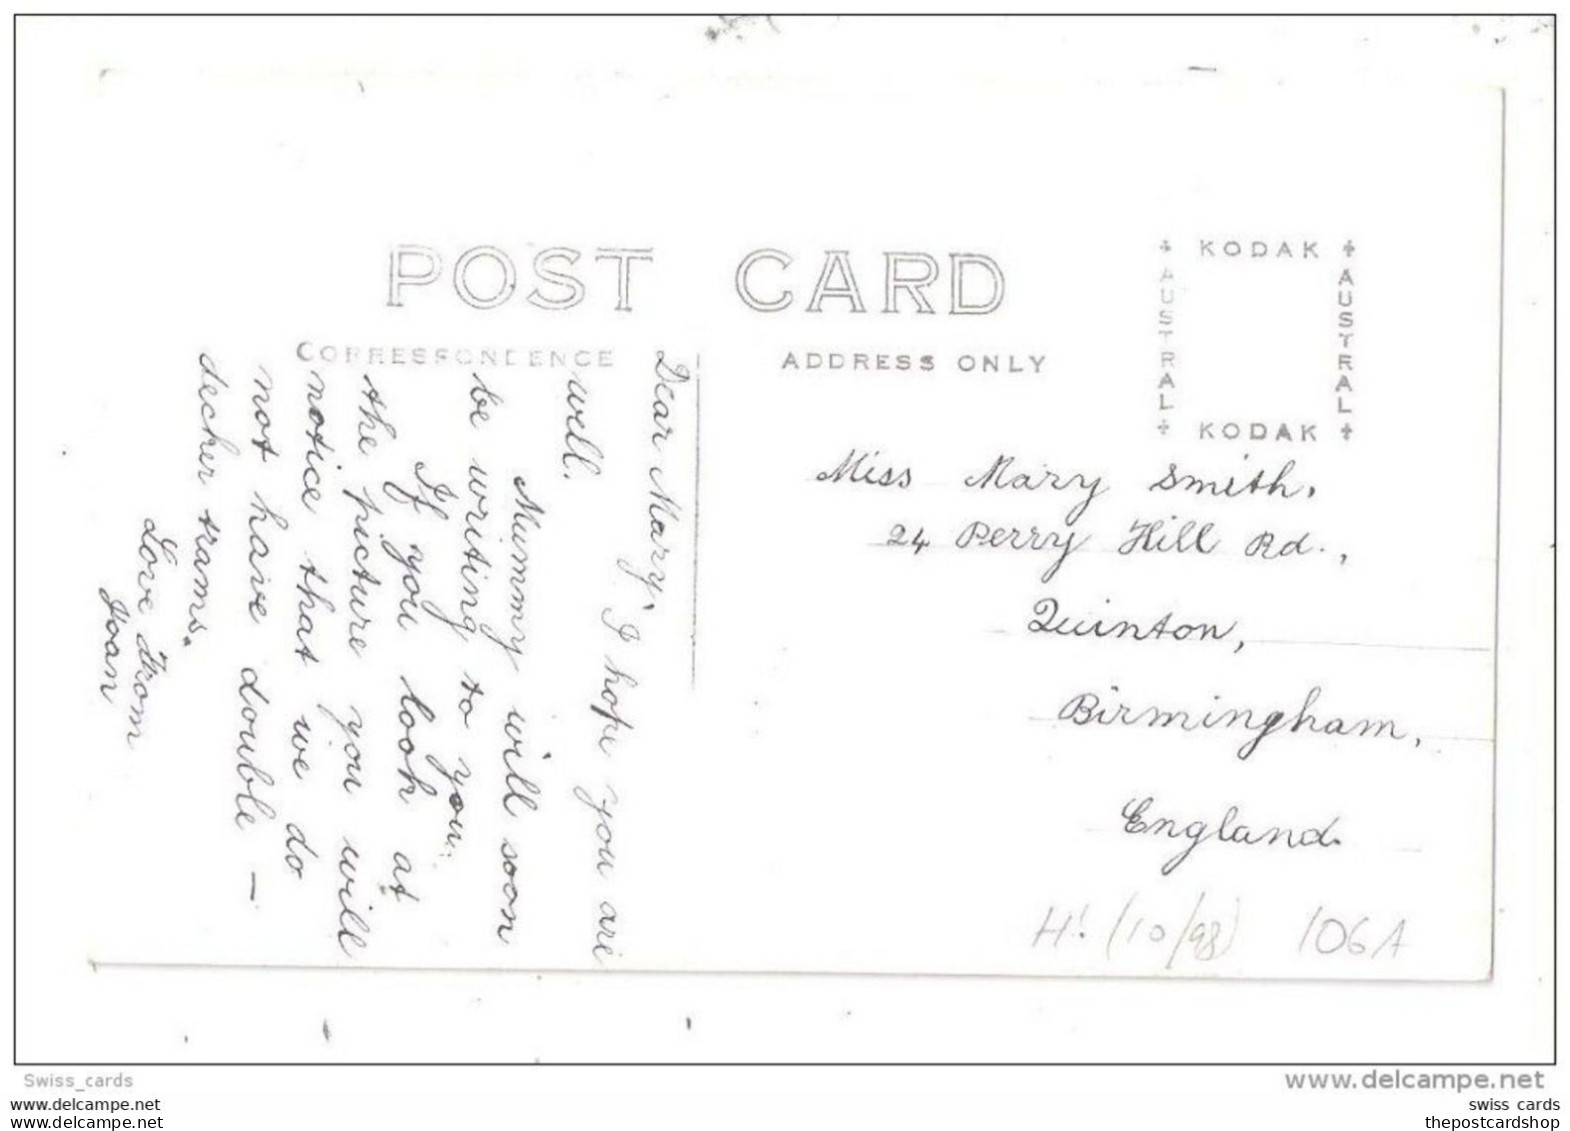 POST CARD
CORRESPONDENCE
ADDRESS ONLY
KODAK
AUSTRAL
AUSTRAL
KODAK
Dear Mary,
I hope you are
well.
Mummy will soon
be writing to you.
If you look at
the picture you will
notice that we do
not have double -
decker trams.
Love from
Joan
Miss Mary Smith,
24 Perry Hill Rd.,
Quinton,
Birmingham,
England.
H! (10/98) 106A
Swiss_cards
www.delcampe.net
swiss cards
swiss cards
thepostcardshop
thepostcardshop